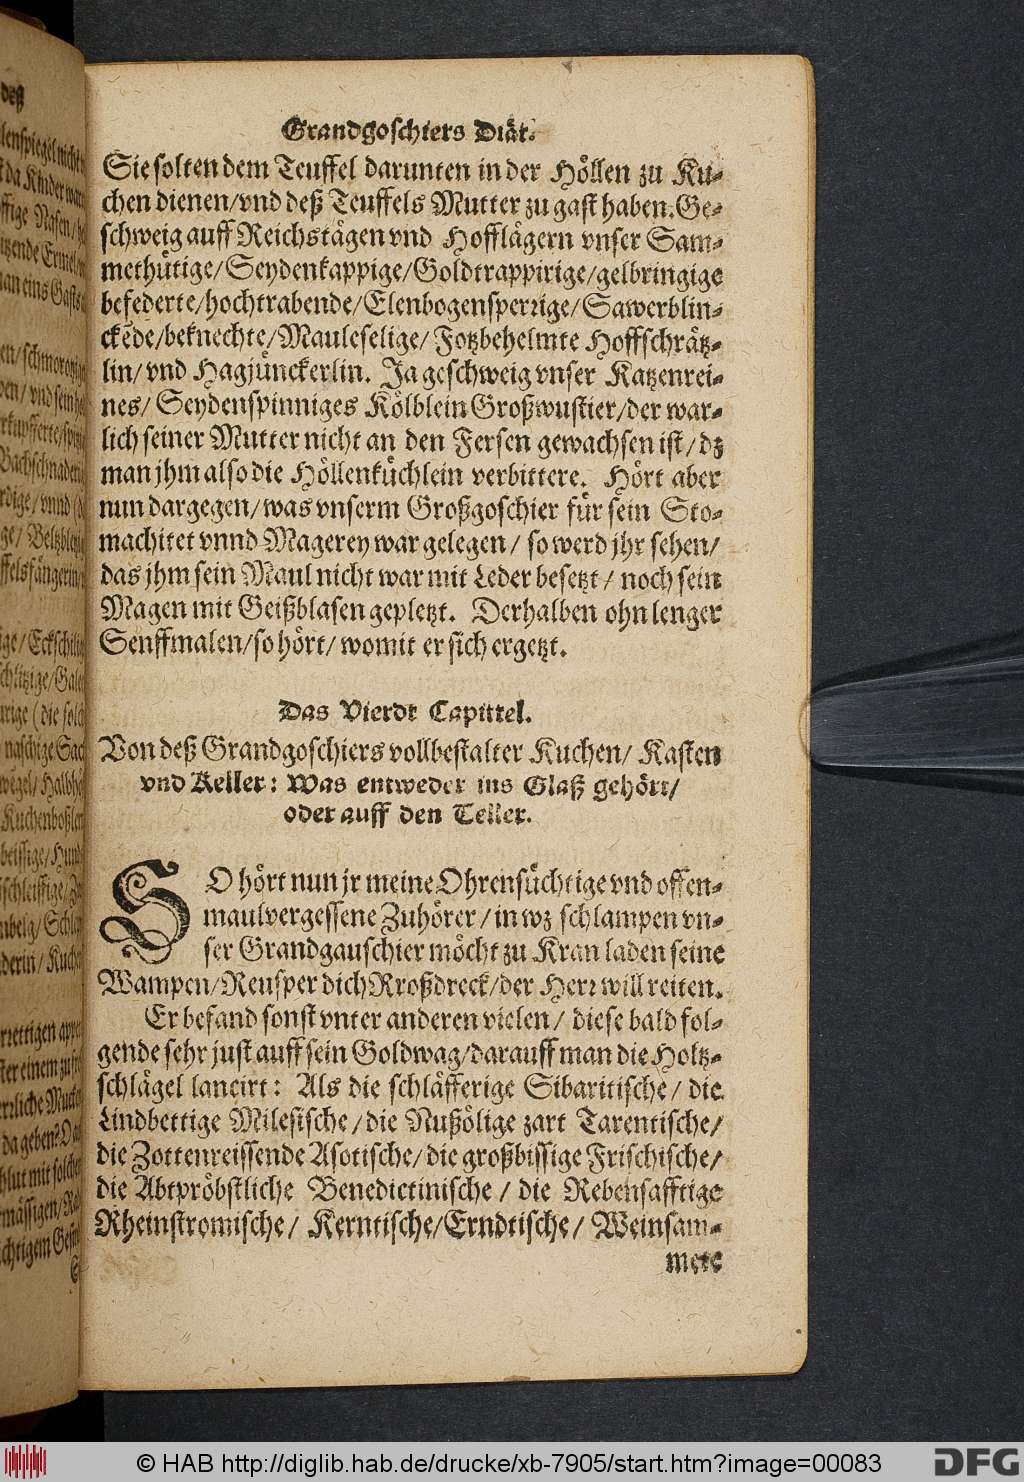 Grandgoschiers Diät.
Sie solten dem Teuffel darunten in der Höllen zu Ku-
chen dienen/vnd deß Teuffels Mutter zu gast haben. Ge-
schweig auff Reichstägen vnd Hofflägern vnser Sam-
methütige/Seydenkappige/Goldtrappirige/gelbringige
befederte/hochtrabende/Elenbogensperrige/Sawerblin-
ckēde/beknechte/Mauleselige/Fotzbehelmte Hoffschrätz-
lin/vnd Hagjünckerlin. Ja geschweig vnser Katzenrei-
nes/ Seydenspinniges Kölblein Großwustier/der war-
lich seiner Mutter nicht an den Fersen gewachsen ist/dz
man jhm also die Höllenküchlein verbittere. Hört aber
nun dargegen/was vnserm Großgoschier für sein Sto-
machitet vnnd Magerey war gelegen/ so werd jhr sehen/
das jhm sein Maul nicht war mit Leder besetzt/ noch sein
Magen mit Geißblasen gepletzt. Derhalben ohn lenger
Senffmalen/so hört/ womit er sich ergetzt.
Das Vierdt Capittel.
Von deß Grandgoschiers vollbestalter Kuchen/ Kasten
vnd Keller: Was entweder ins Glaß gehört/
oder auff den Teller.
SO hört nun jr meine Ohrensüchtige vnd offen-
maulvergessene Zuhörer/in wz schlampen vn-
ser Grandgauschier möcht zu Kran laden seine
Wampen/Reusper dich Rroßdreck/der Herr will reiten.
Er befand sonst vnter anderen vielen/ diese bald fol-
gende sehr just auff sein Goldwag/darauff man die Holtz-
schlägel lancirt: Als die schläfferige Sibaritische/ die
Lindbettige Milesische/die Nußölige zart Tarentische/
die Zottenreissende Asotische/die großbissige Frischische/
die Abtpröbstliche Benedictinische/ die Rebensafftige
Rheinstromische/ Kerntische/Erndtische/ Weinsam-
mete
© HAB http://diglib.hab.de/drucke/xb-7905/start.htm?image=00083
DFG